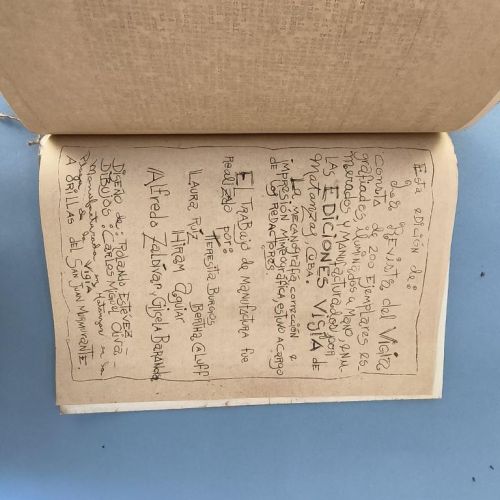 Esta EDICIÓN de:
de la REVISTA del VIGÍA
consta de 200 Ejemplares es-
grafiados, iluminados a mano, nu-
merados y MANUfacturados por
LAS EDICIONES VIGÍA de
Matanzas, CUBA.
La mecanografía, corrección e
IMPRESIÓN MIMEOGRÁFICA, estuvo A CARGO
de los REDACTORES.
EL TRABAJO de MANUFACTURA fue
Realizado por:
TERESITA BURGOS
Bertha CALUFF
LAURA RUIZ
HIRAM Aguiar
Alfredo Zaldívar, Gisela BARANDA
DISEÑO de: Rolando Estévez -
DIBUJOS: CARLOS Miguel Oliva -
Manufacturada en
de la Vigía
A ORILLAS del SAN JUAN